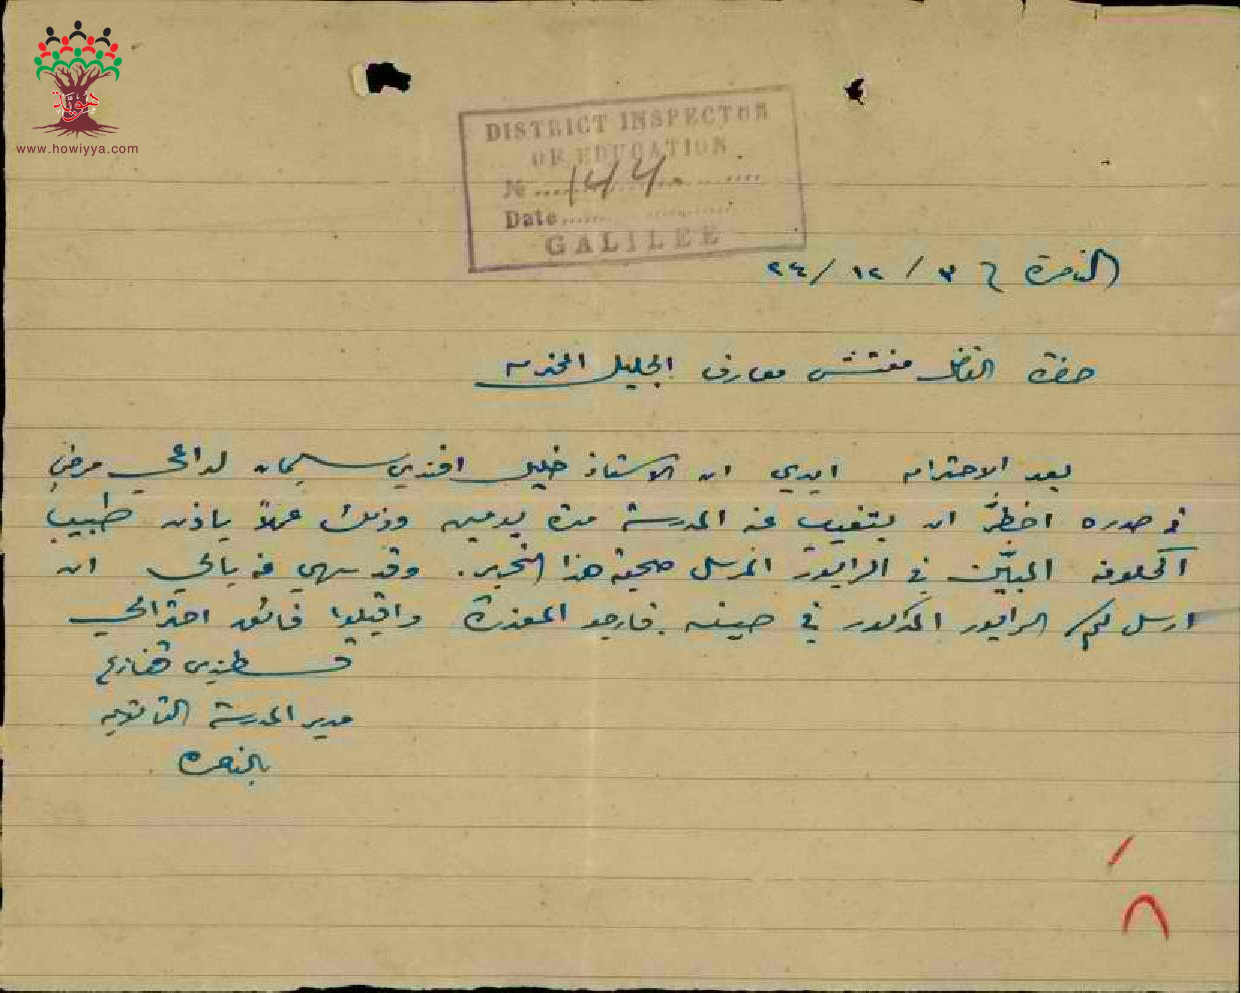 هوية
www.howiyya.com
DISTRICT INSPECTOR
OF EDUCATION
№ 144
Date
GALILEE
الناصرة في ٣ / ١٢ / ٢٤
حضرة الفاضل مفتش معارف الجليل المحترم
بعد الاحترام ابدي ان الاستاذ خليل افندي سليمان لداعي مرض
في صدره اضطرّ ان يتغيب عن المدرسة مدة يومين وذلك عملاً باذن طبيب
الحكومة المبيّن في الرابور المرسل صحبة هذا التحرير. وقد سهي عن بالي ان
ارسل لكم الرابور المذكور في حينه فارجو المعذرة واقبلوا فائق احترامي
قسطندي قنازع
مدير المدرسة الثانوية
بالناصرة
٨